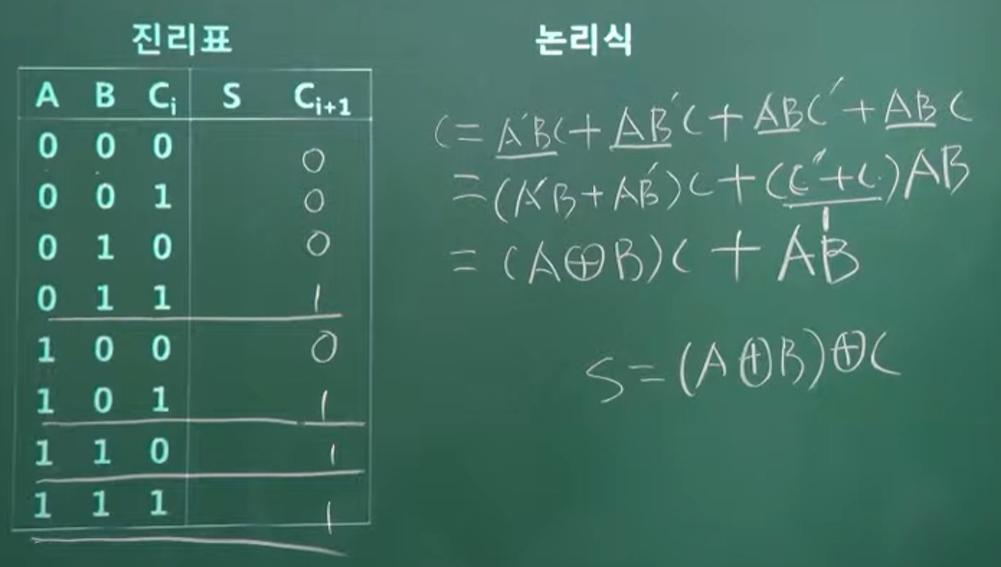 진리표
논리식
A B Ci S Ci+1
0 0 0 0
0 0 1 0
0 1 0 0
0 1 1 1
1 0 0 0
1 0 1 1
1 1 0 1
1 1 1 1
C = A'BC + AB'C + ABC' + ABC
= (A'B + AB')C + (C' + C)AB
1
= (A⊕B)C + AB
S = (A⊕B)⊕C